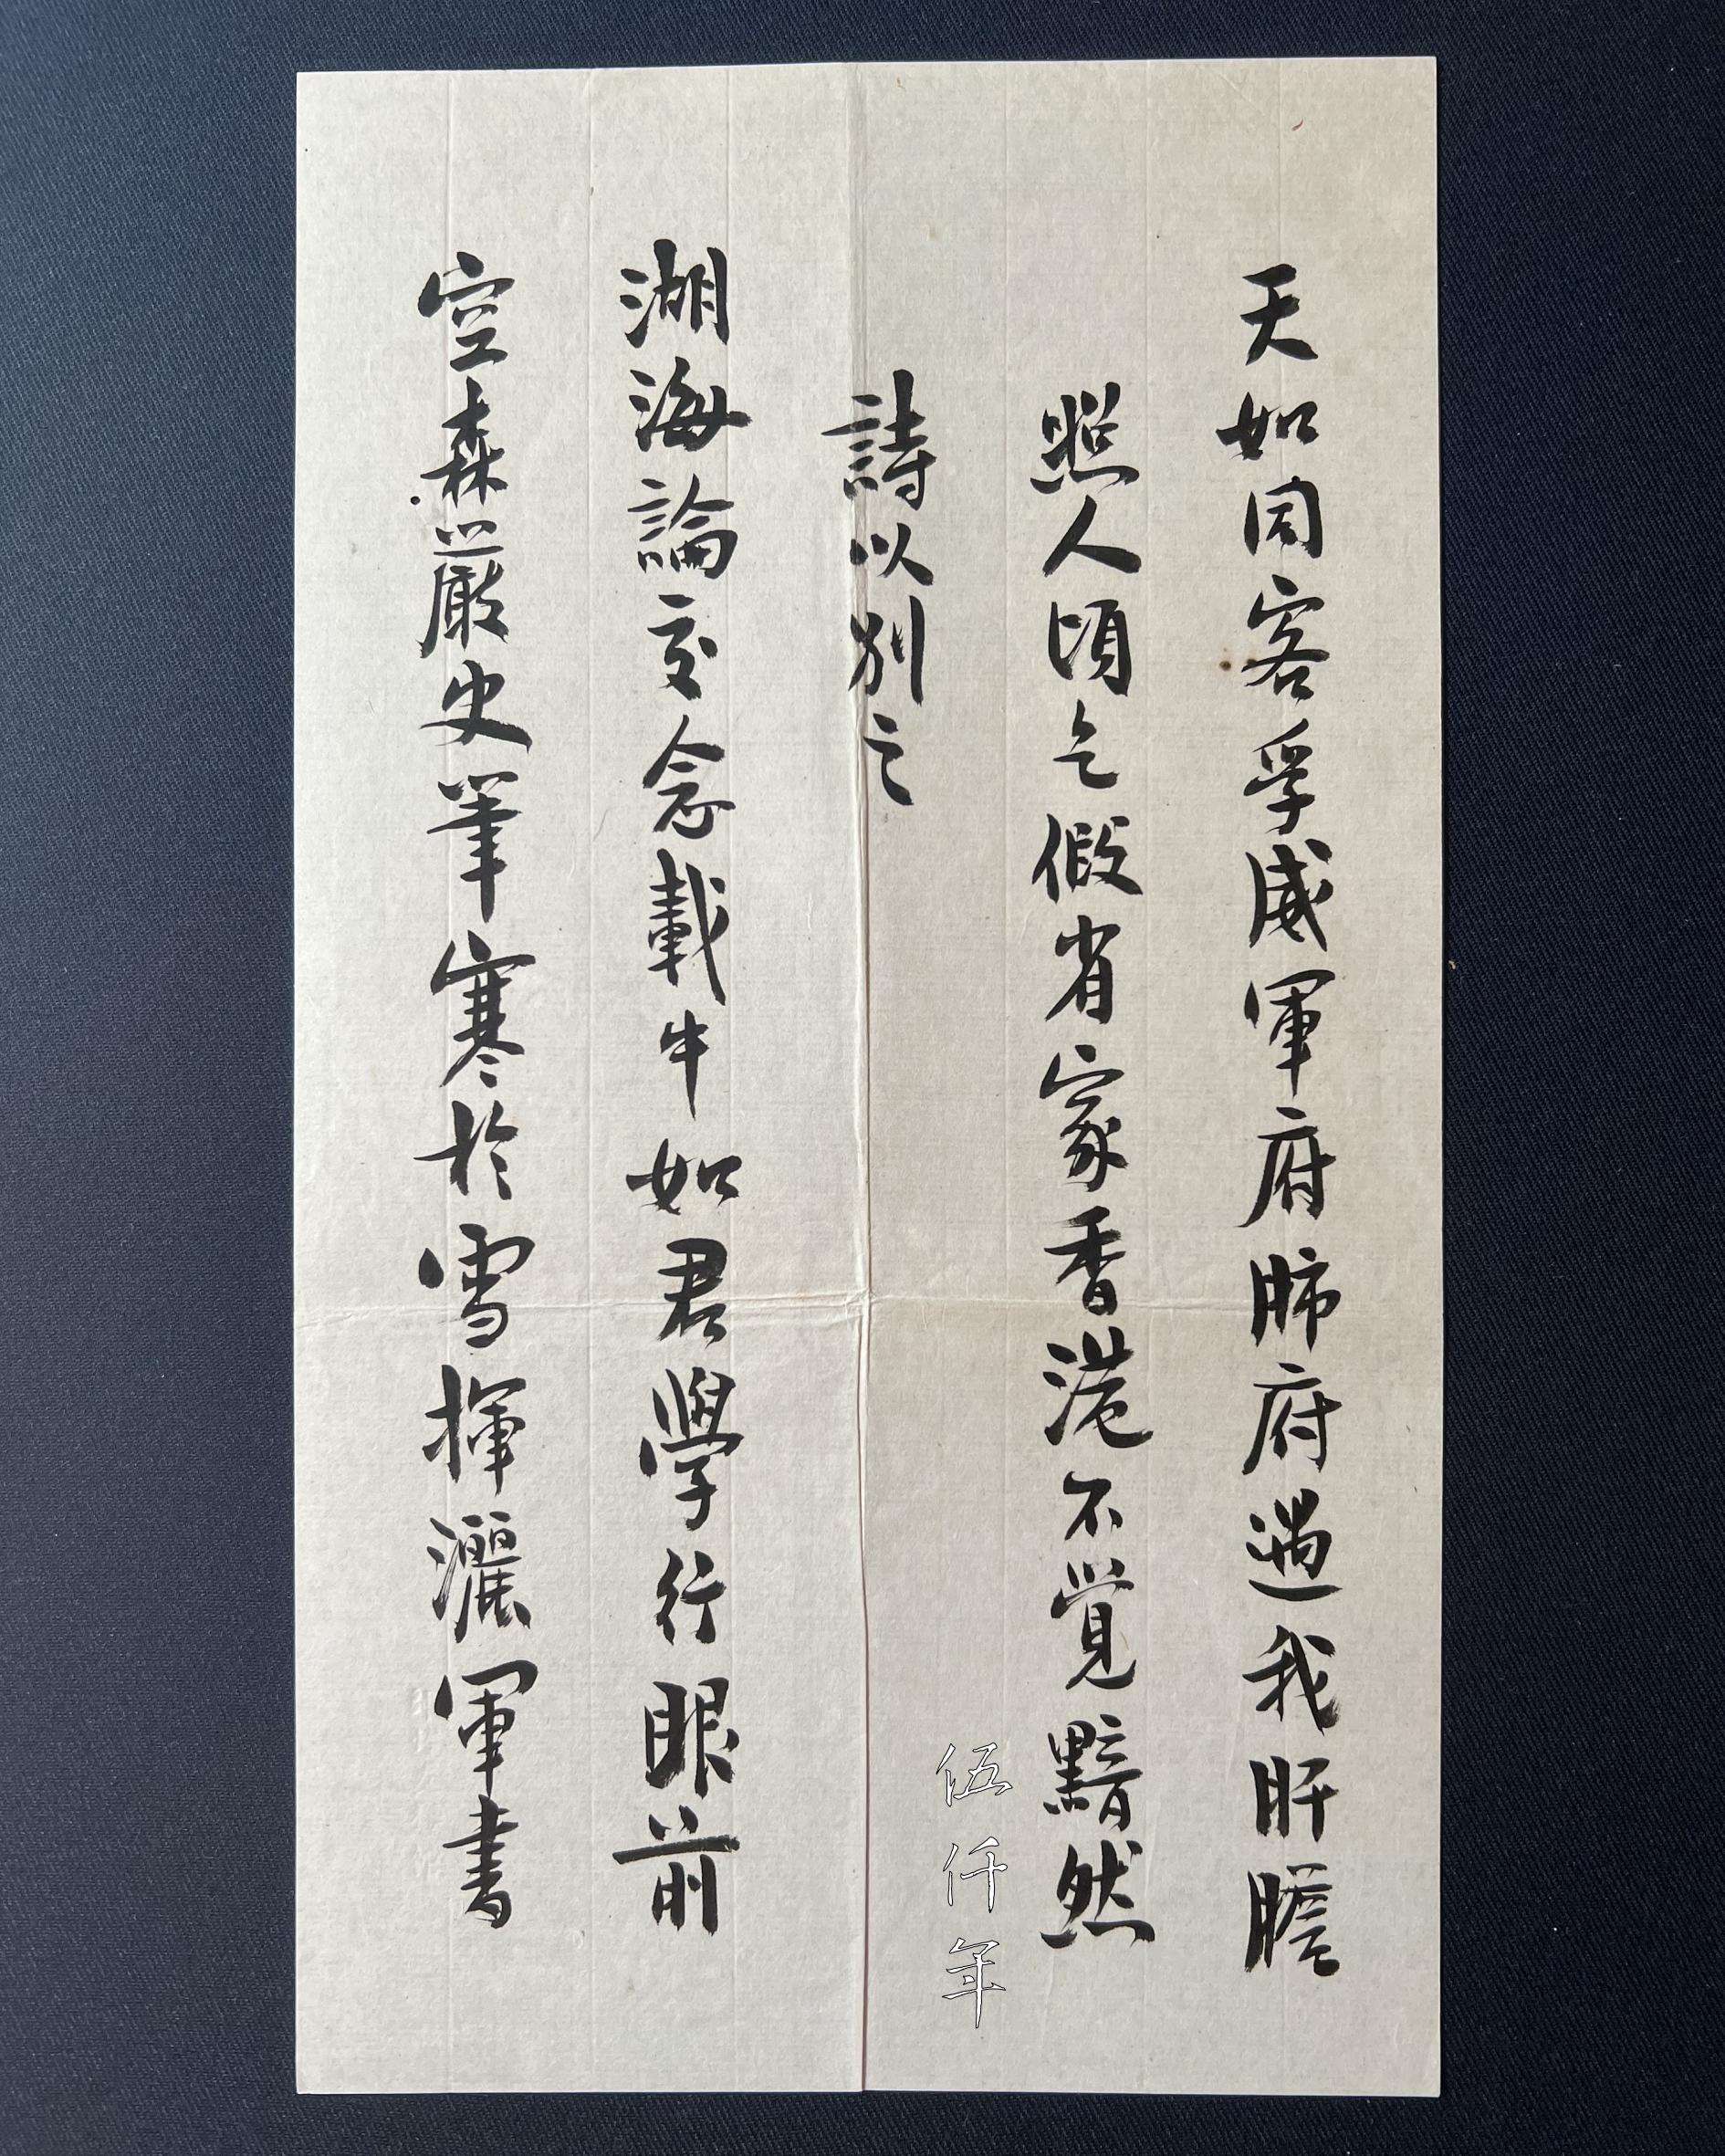 天如同客孚威軍府肺府過我肝膽
照人頃乞假省家香港不覺黯然
詩以別之
湖海論交念載牛如君學行眼前
空森嚴史筆寒於雪揮灑軍書
伍仟年